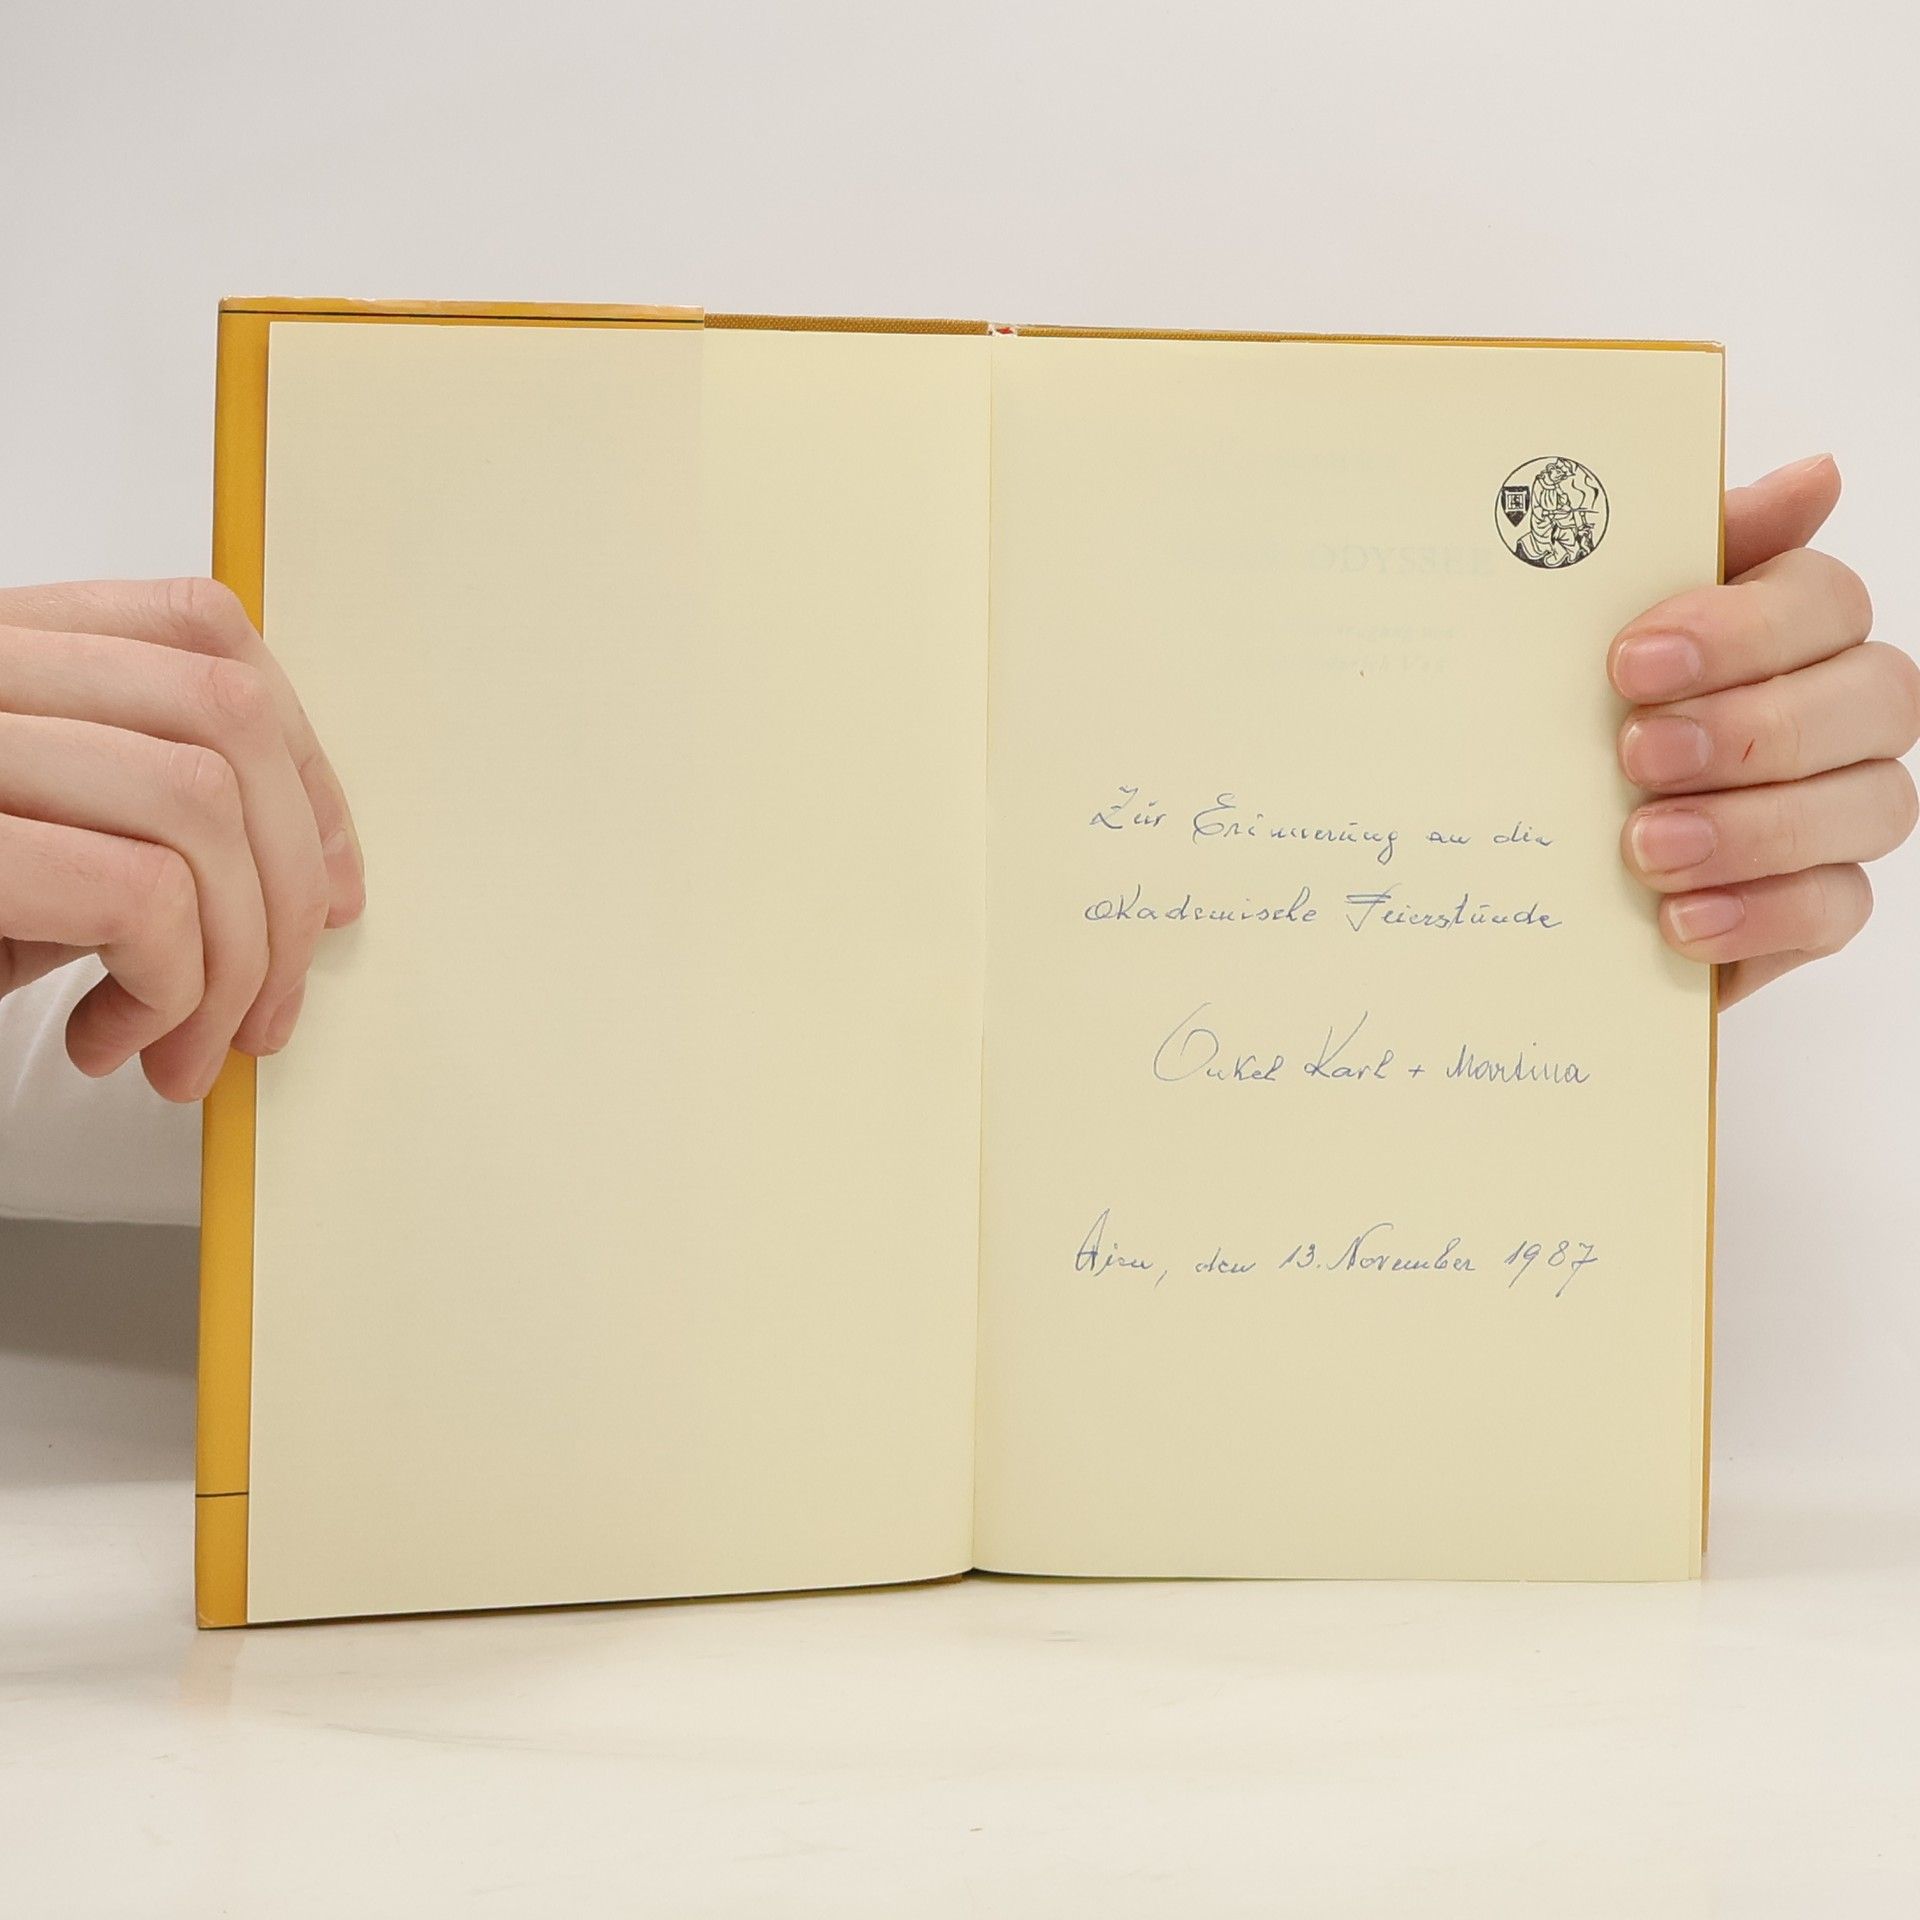 ODYSSEE
Zur Erinnerung an die
Akademische Feierstunde
Onkel Karl + Martina
Wien, den 13. November 1987